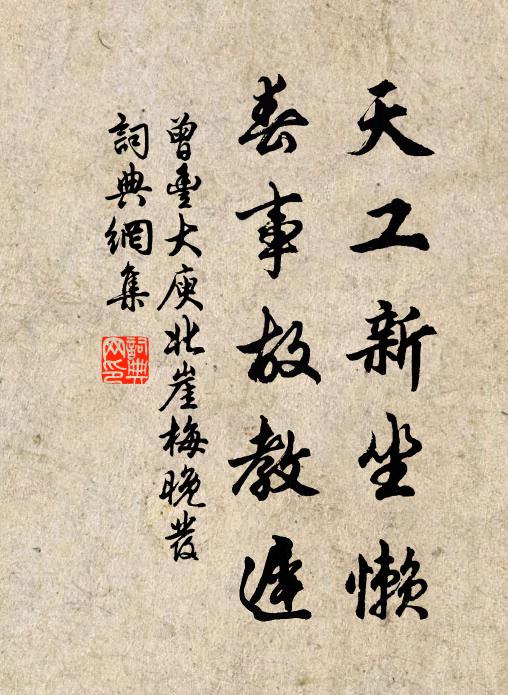 天工新坐懶
春事故教遲
曾豐大庾北崖梅晚發
詞典網集
詞典
网印